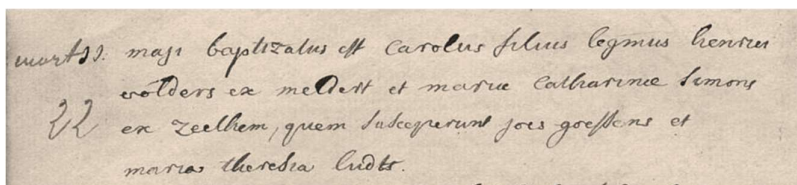 maji baptizatus est Carolus filius legmus henrici
wolders ex meldert et mariæ Catharinæ Simons
22 ex Zeelhem, quem susceperunt joes goessens et
maria theresia ludts.